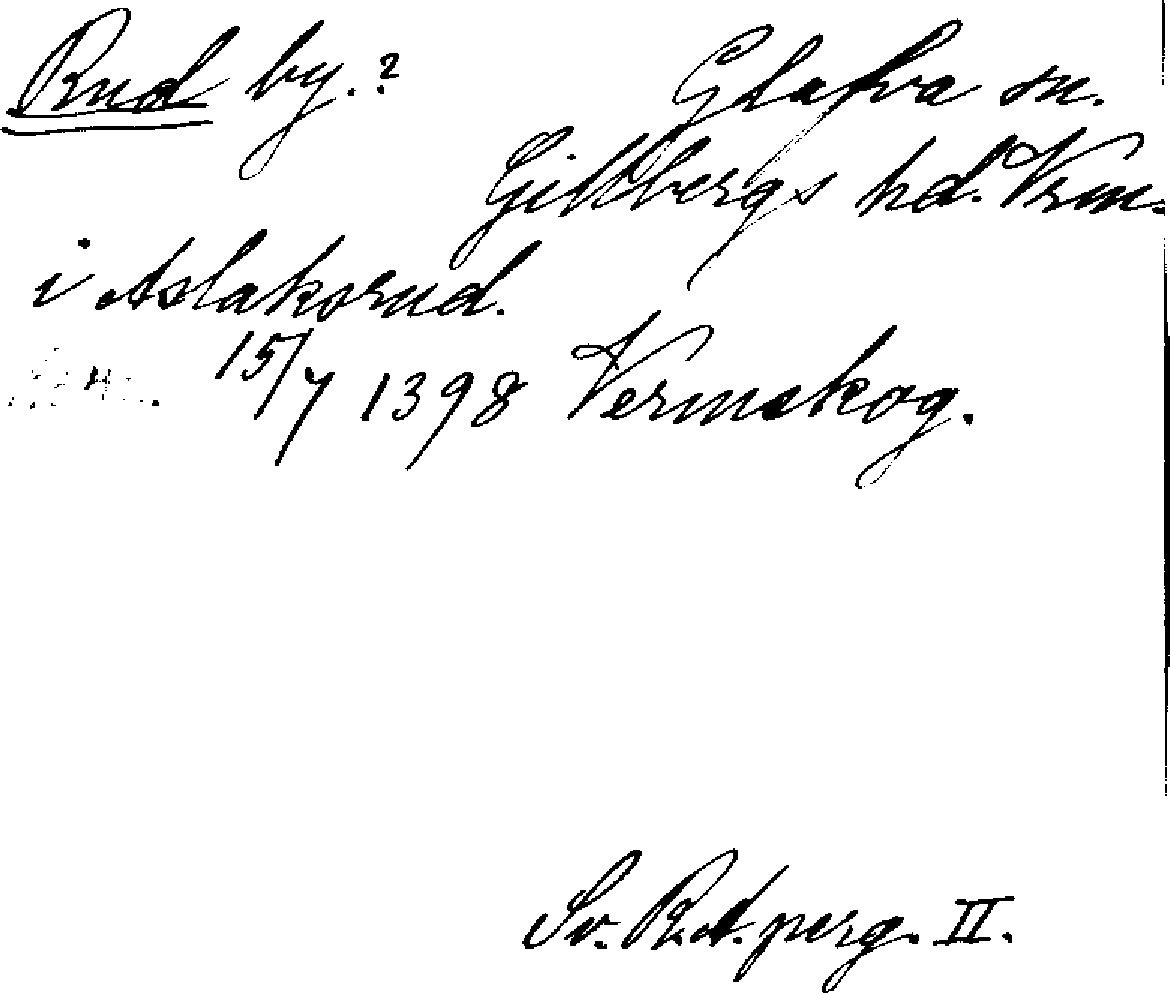 Rud by.? Glafva sn.
Gillbergs hd. Vrm.
i Aslaksrud.
15/7 1398 Vermskog.
Sv. R.A. perg. II.